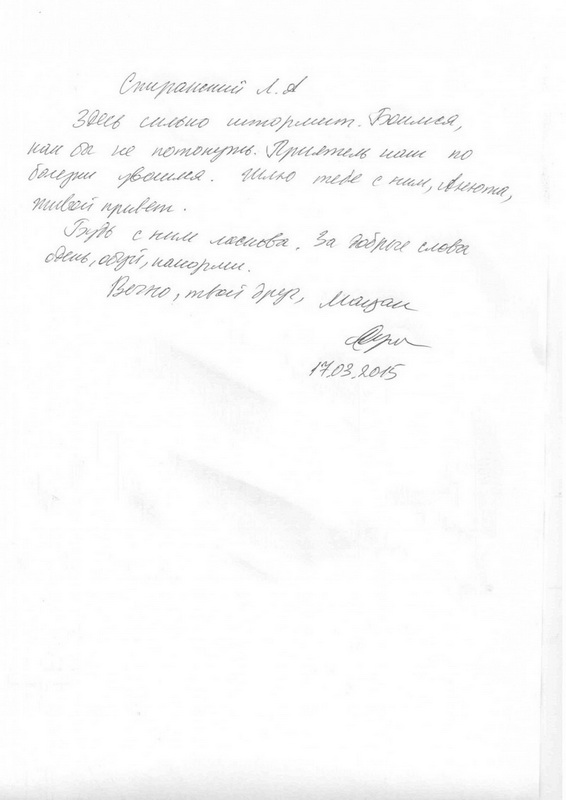 Спиранский Л.А
Здесь сильно штормит. Боимся,
как бы не потонуть. Приятель наш по
болезни уволился. Шлю тебе с ним, Анюта,
живой привет.
Будь с ним ласкова. За добрые слова
одень, обуй, накорми.
Вечно, твой друг,
17.03.2015